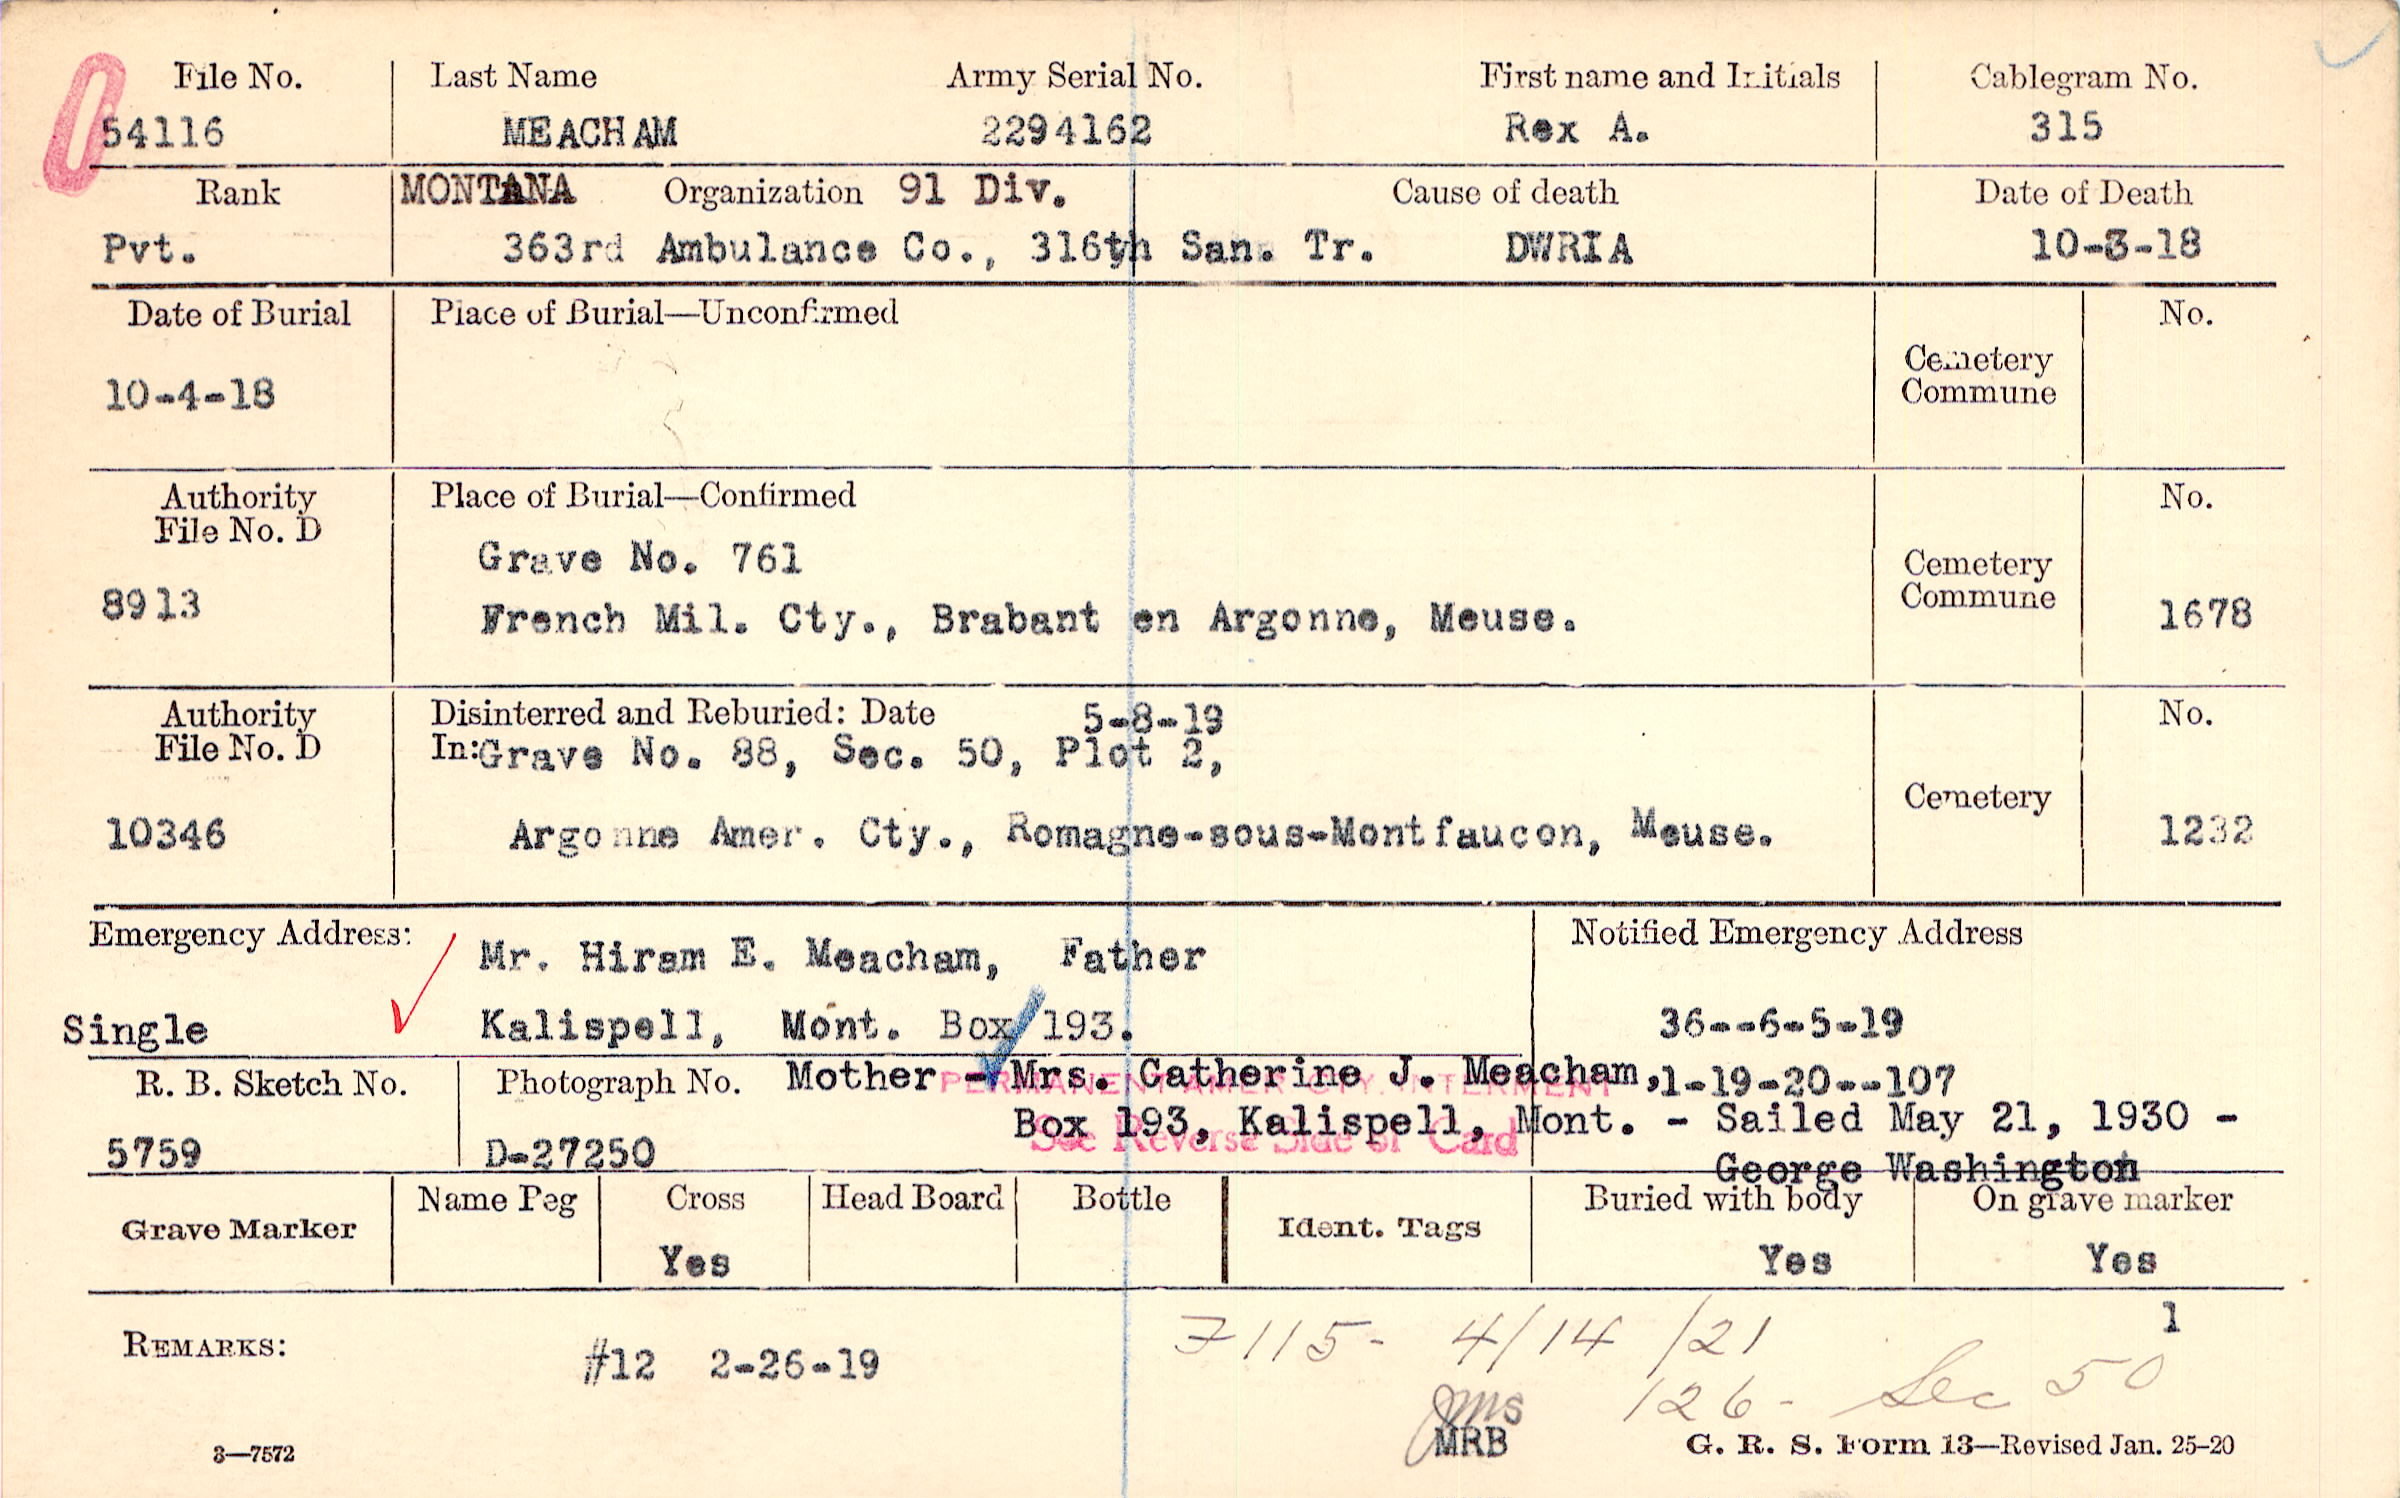 File No. Last Name Army Serial No. First name and Initials Cablegram No.
54116 MEACHAM 2294162 Rex A. 315
Rank MONTANA Organization 91 Div. Cause of death Date of Death
Pvt. 363rd Ambulance Co., 316th San. Tr. DWRIA 10-3-18
Date of Burial Place of Burial—Unconfirmed No.
Cemetery
Commune
10-4-18
Authority Place of Burial—Confirmed No.
File No. D
Grave No. 761
Cemetery
Commune
8913 French Mil. Cty., Brabant en Argonne, Meuse. 1678
Authority Disinterred and Reburied: Date 5-8-19 No.
File No. D In: Grave No. 88, Sec. 50, Plot 2,
Cemetery
10346 Argonne Amer. Cty., Romagne-sous-Montfaucon, Meuse. 1232
Emergency Address: Mr. Hiram E. Meacham, Father Notified Emergency Address
Single Kalispell, Mont. Box 193. 36--6-5-19
R. B. Sketch No. Photograph No. Mother - Mrs. Catherine J. Meacham, 1-19-20--107
PERMANENT AMER CTY. INTERMENT
Box 193, Kalispell, Mont. - Sailed May 21, 1930 -
See Reverse Side of Card
5759 D-27250
George Washington
Grave Marker Name Peg Cross Head Board Bottle Ident. Tags Buried with body On grave marker
Yes Yes Yes
1
REMARKS: #12 2-26-19 7115- 4/14/21
126- Sec 50
JMS
MRB
3—7572 G. R. S. Form 13—Revised Jan. 25-20